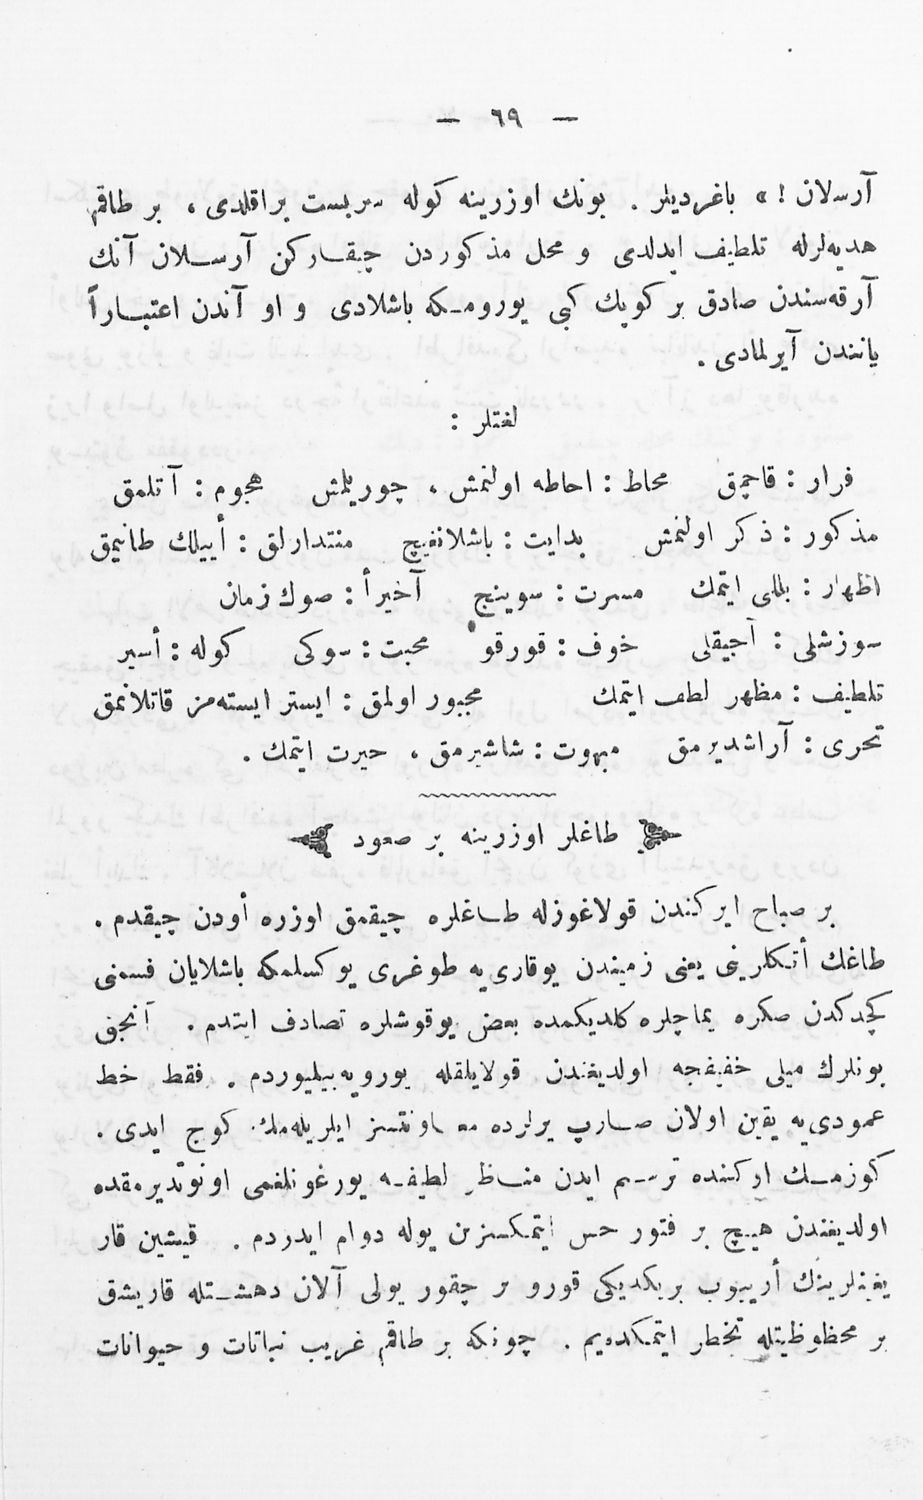 — ٦٩ —
آرسلان ! » باغرديلر . بونك اوزرينه كوله سربست براقلدى ، بر طاقم
هديه‌لرله تلطيف ايدلدى و محل مذكوردن چيقاركن آرسلان آنك
آرقه‌سندن صادق بر كوپك كبى يورومكه باشلادى و او آندن اعتباراً
يانندن آيرلمادى .
لغتلر :
فرار : قاچمق محاط : احاطه اولنمش ، چوريلمش هجوم : آتلمق
مذكور : ذكر اولنمش بدايت : باشلانغيچ منتدارلق : أييلك طانيمق
اظهار : بللى ايتمك مسرت : سوينج آخيراً : صوك زمان
سوزشلى : آجيقلى خوف : قورقو محبت : سوكى كوله : أسير
تلطيف : مظهر لطف ايتمك مجبور اولمق : ايستر ايسته‌مز قاتلانمق
تحرى : آراشديرمق مبهوت : شاشيرمق ، حيرت ايتمك .
طاغلر اوزرينه بر صعود
بر صباح ايركندن قولاغوزله طاغلره چيقمق اوزره أودن چيقدم .
طاغك أتكلرينى يعنى زميندن يوقارى‌يه طوغرى يوكسلمكه باشلايان قسمنى
كچدكدن صكره يماچلره كلديكمده بعض يوقوشلره تصادف ايتدم . آنجق
بونلرك ميلى خفيفجه اولديغندن قولايلقله يورويه‌بيليوردم . فقط خط
عمودى‌يه يقين اولان صارپ يرلرده معاونتسز ايلريله‌مك كوج ايدى .
كوزمك اوكنده ترسم ايدن مناظر لطيفه يورغونلغمى اونوتديرمقده
اولديغندن هيچ بر فتور حس ايتمكسزين يوله دوام ايدردم . قيشين قار
يغينلرينك أرييوب بريكديكى قورو بر چقور يولى آلان دهشتله قاريشق
بر محظوظيتله تخطر ايتمكده‌يم . چونكه بر طاقم غريب نباتات و حيوانات